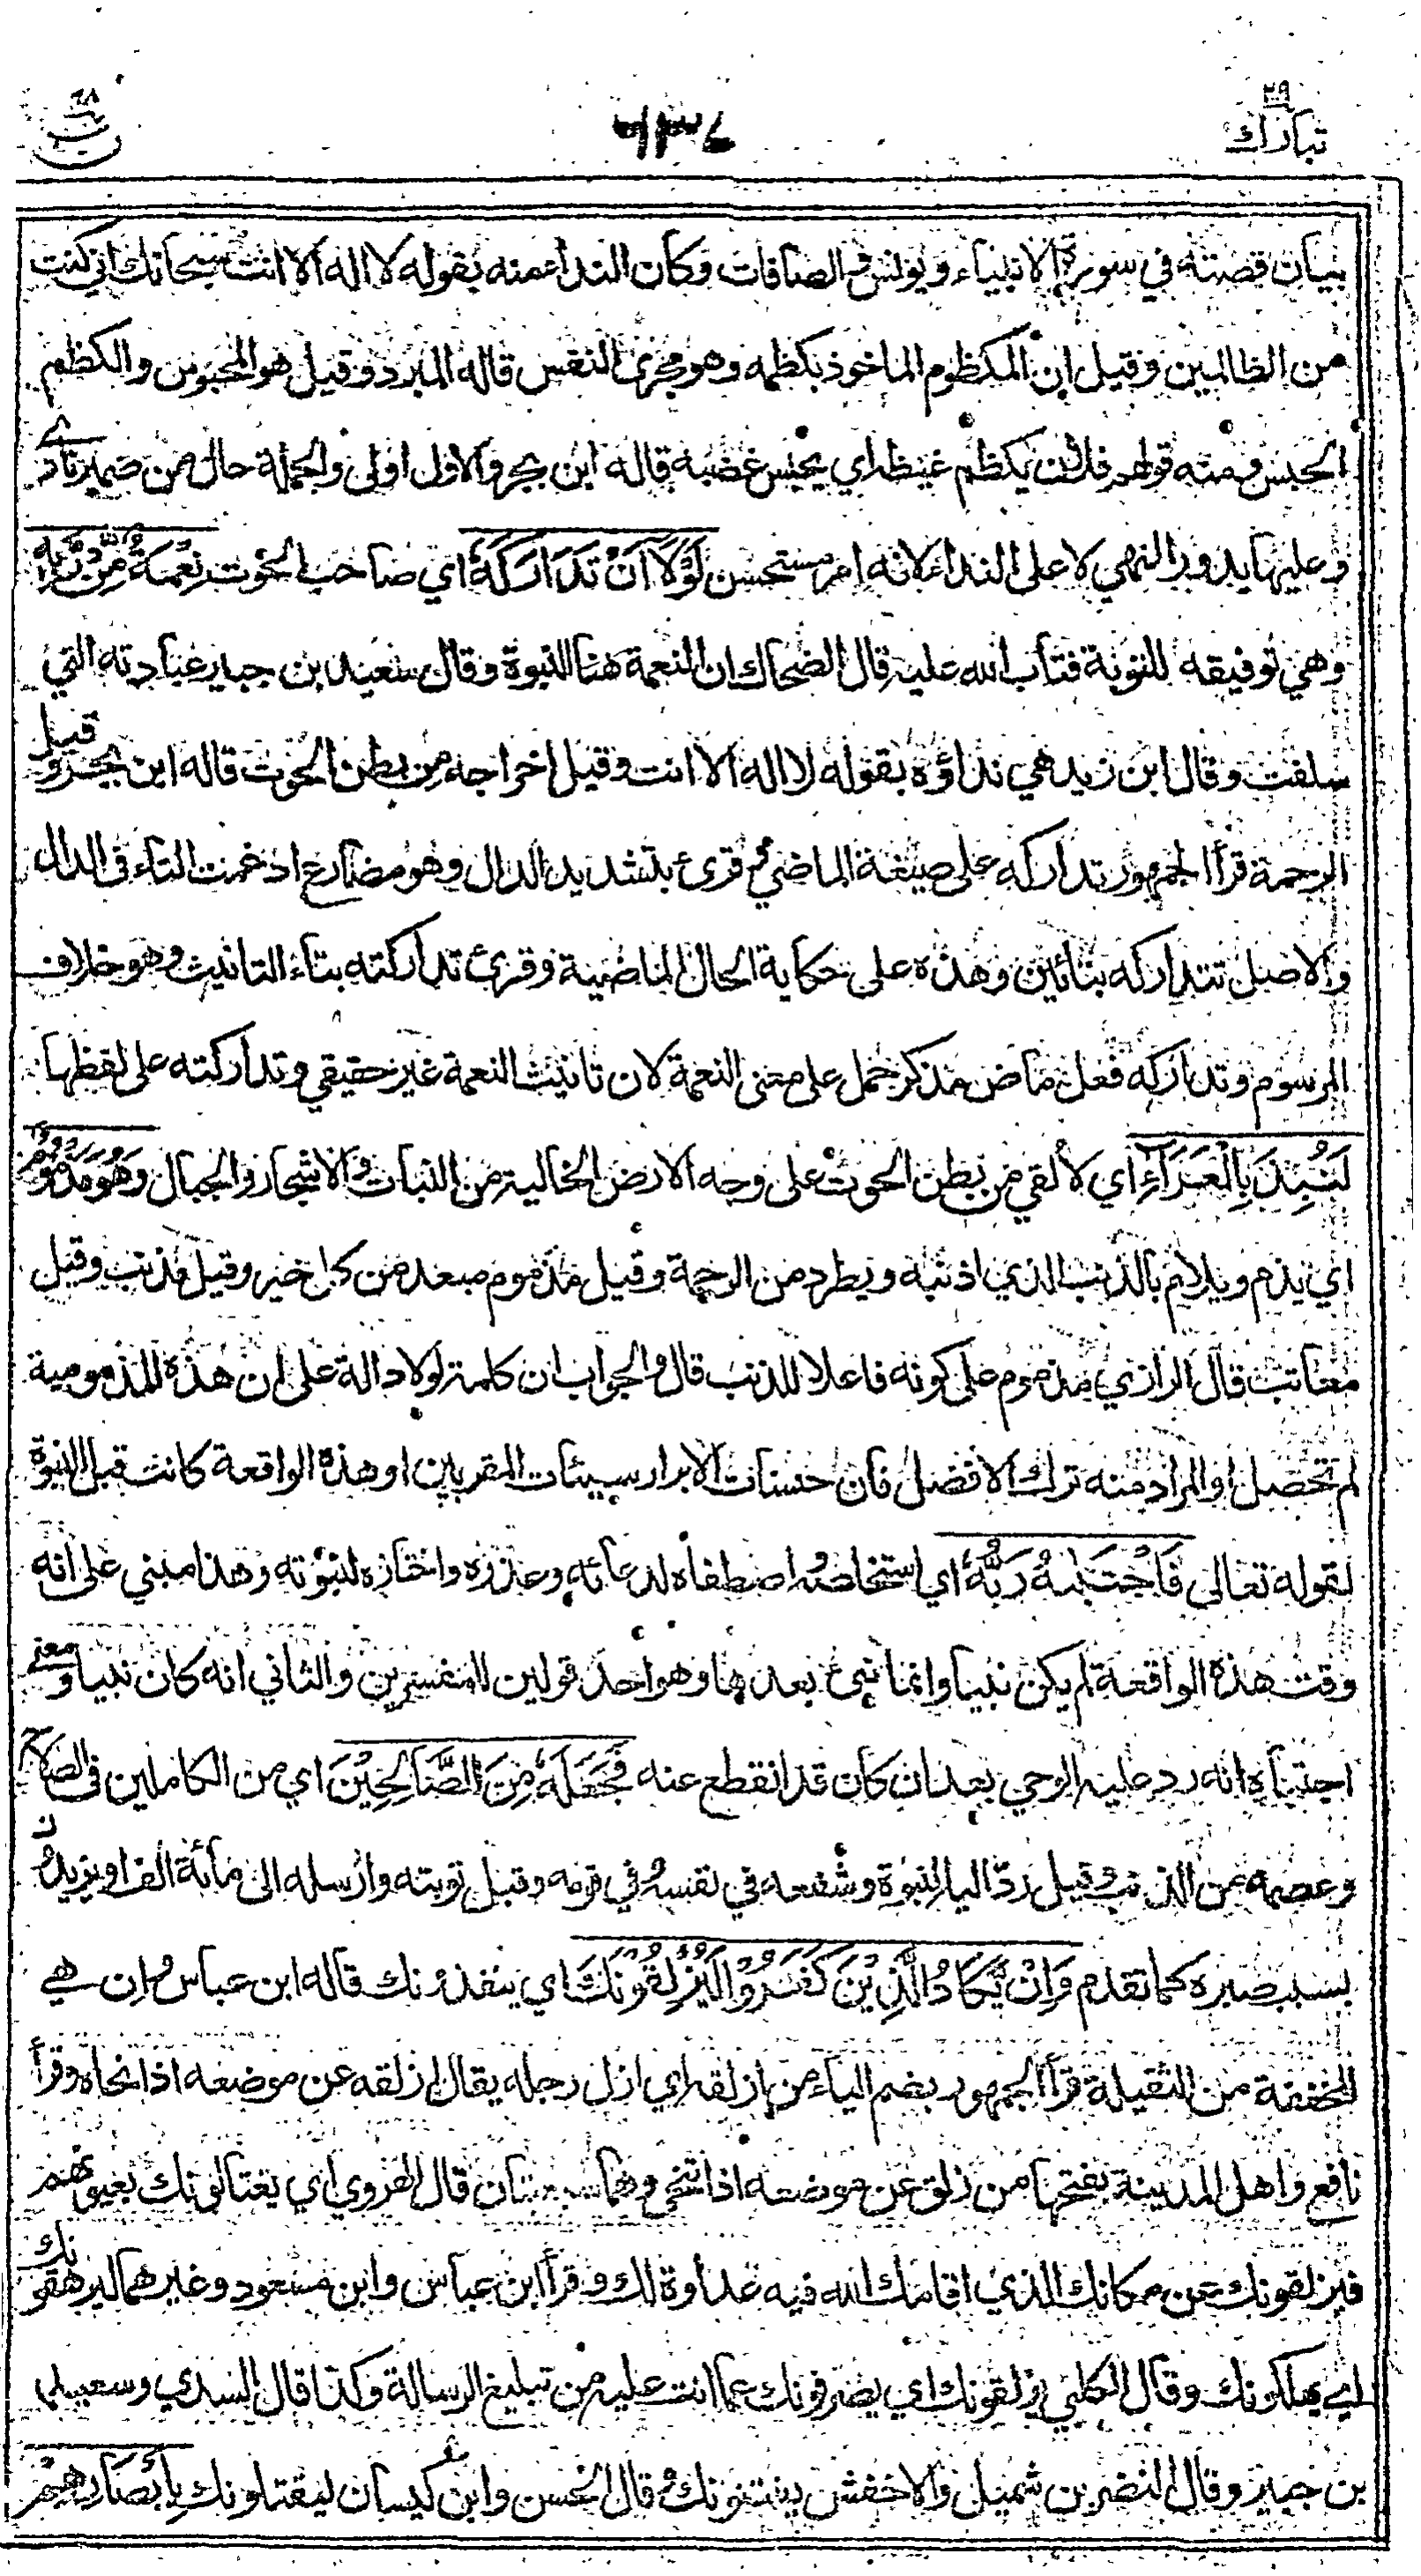 ٢٩
تبارك
٦٣٤
٦٨
ن
بيان قصته في سورة الانبياء ويونس والصافات وكان النداء منه بقوله لا اله الا انت سبحانك اني كنت
من الظالمين وقيل ان المكظوم الماخوذ بكظمه وهو مجرى النفس قاله المبرد وقيل هو المحبوس والكظم
الحبس ومنه قولهم فلان يكظم غيظه اي يحبس غضبه قاله ابن بحر والاول اولى والجملة حال من ضمير نادى
وعليها يدور النهي لا على النداء لانه امر مستحسن لَوْلَا أَنْ تَدَارَكَهُ اي صاحب الحوت نِعْمَةٌ مِّنْ رَّبِّهِ
وهي توفيقه للتوبة فتاب الله عليه قال الضحاك ان النعمة هنا النبوة وقال سعيد بن جبير عبادته التي
سلفت وقال ابن زيد هي نداؤه بقوله لا اله الا انت وقيل اخراجه من بطن الحوت قاله ابن بحر وقيل
الرحمة قرأ الجمهور تداركه على صيغة الماضي وقرئ بتشديد الدال وهو مضارع ادغمت التاء في الدال
والاصل تتداركه بتائين وهذه على حكاية الحال الماضية وقرئ تداركته بتاء التانيث وهو خلاف
المرسوم وتداركه فعل ماض مذكر حمل على معنى النعمة لان تانيث النعمة غير حقيقي وتداركته على لفظها
لَنُبِذَ بِالْعَرَاءِ اي لألقي من بطن الحوت على وجه الارض الخالية من النبات والاشجار والجبال وَهُوَ مَذْمُوْمٌ
اي يذم ويلام بالذنب الذي اذنبه ويطرد من الرحمة وقيل مذموم مبعد من كل خير وقيل مذنب وقيل
معاتب قال الرازي مذموم على كونه فاعلا للذنب قال والجواب ان كلمة لولا دالة على ان هذه المذمومية
لم تحصل او المراد منه ترك الافضل فان حسنات الابرار سيئات المقربين او هذه الواقعة كانت قبل النبوة
لقوله تعالى فَاجْتَبٰهُ رَبُّهُ اي استخلصه واصطفاه لدعائه وعذره واختاره لنبوته وهذا مبني على انه
وقت هذه الواقعة لم يكن نبيا وانما نبئ بعدها وهو احد قولين للمفسرين والثاني انه كان نبيا ومعنى
اجتباه انه رد عليه الوحي بعد ان كان قد انقطع عنه فَجَعَلَهُ مِنَ الصَّالِحِيْنَ اي من الكاملين في الصلاح
وعصمه من الذنب وقيل ردّ اليه النبوة وشفعه في نفسه وفي قومه وقبل توبته وارسله الى مائة الف او يزيدون
بسبب صبره كما تقدم وَاِنْ يَّكَادُ الَّذِيْنَ كَفَرُوْا لَيُزْلِقُوْنَكَ اي ينفذونك قاله ابن عباس وان هي
المخففة من الثقيلة قرأ الجمهور بضم الياء من ازلقه اي ازل رجله يقال ازلقه عن موضعه اذا نحاه وقرأ
نافع واهل المدينة بفتحها من زلق عن موضعه اذا تنحى وهما سبعيتان قال الهروي اي يغتالونك بعيونهم
فيزلقونك عن مكانك الذي اقامك الله فيه عداوة لك وقرأ ابن عباس وابن مسعود وغيرهما ليرهقونك
اي يهلكونك وقال الكلبي يزلقونك اي يصرفونك عما انت عليه من تبليغ الرسالة وكذا قال السدي وسعيد
بن جبير وقال النضر بن شميل والاخفش يفتنونك وقال الحسن وابن كيسان ليقتلونك بِأَبْصَارِهِمْ